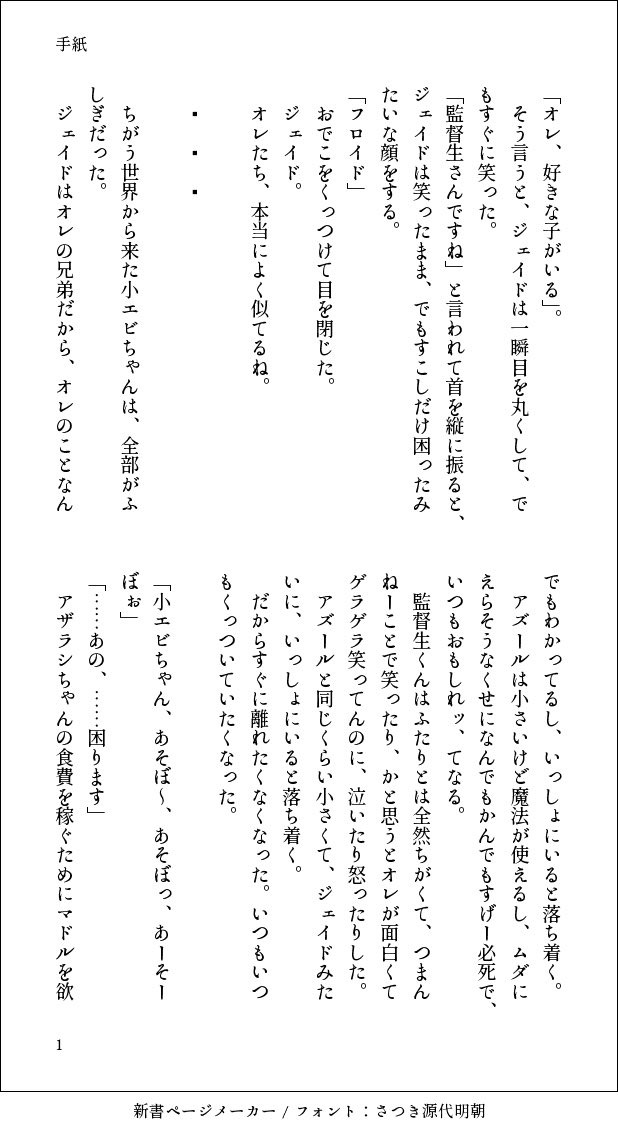 手紙
「オレ、好きな子がいる」。
そう言うと、ジェイドは一瞬目を丸くして、で
もすぐに笑った。
「監督生さんですね」と言われて首を縦に振ると、
ジェイドは笑ったまま、でもすこしだけ困ったみ
たいな顔をする。
「フロイド」
おでこをくっつけて目を閉じた。
ジェイド。
オレたち、本当によく似てるね。
・・・
ちがう世界から来た小エビちゃんは、全部がふ
しぎだった。
ジェイドはオレの兄弟だから、オレのことなん
でもわかってるし、いっしょにいると落ち着く。
アズールは小さいけど魔法が使えるし、ムダに
えらそうなくせになんでもかんでもすげー必死で、
いつもおもしれッ、てなる。
監督生くんはふたりとは全然ちがくて、つまん
ねーことで笑ったり、かと思うとオレが面白くて
ゲラゲラ笑ってんのに、泣いたり怒ったりした。
アズールと同じくらい小さくて、ジェイドみた
いに、いっしょにいると落ち着く。
だからすぐに離れたくなくなった。いつもいつ
もくっついていたくなった。
「小エビちゃん、あそぼ〜、あそぼっ、あーそー
ぼぉ」
「……あの、……困ります」
アザラシちゃんの食費を稼ぐためにマドルを欲
1
新書ページメーカー / フォント：さつき源代明朝